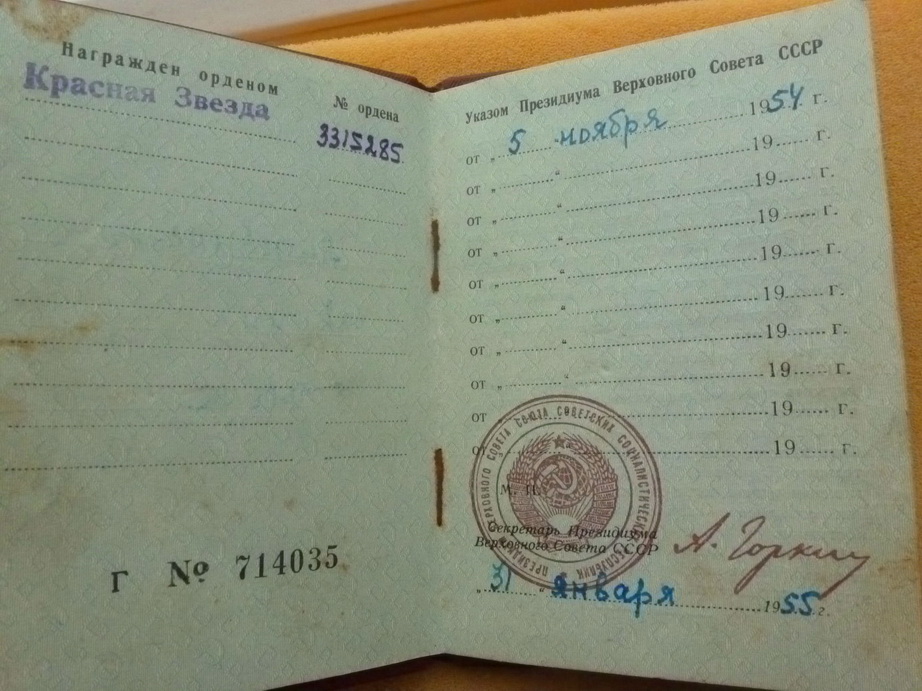 Награжден орденом
№ ордена
Красная Звезда
3315285
Г № 714035
Указом Президиума Верховного Совета СССР
от „ 5 “ ноября 1954 г.
от „ “ 19 г.
от „ “ 19 г.
от „ “ 19 г.
от „ “ 19 г.
от „ “ 19 г.
от „ “ 19 г.
от „ “ 19 г.
от „ 19 г.
19 г.
М. П.
ПРЕЗИДИУМ ВЕРХОВНОГО СОВЕТА СОЮЗА СОВЕТСКИХ СОЦИАЛИСТИЧЕСКИХ РЕСПУБЛИК
Секретарь Президиума
Верховного Совета СССР
А. Горкин
„ 31 “ января 1955 г.